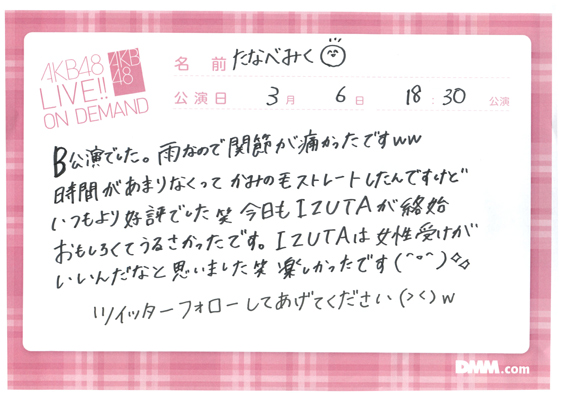 AKB48
LIVE!!
ON DEMAND
AKB
48
名 前 たなべみく
公演日 3月 6日 18:30 公演
B公演でした。雨なので関節が痛かったですww
時間があまりなくってかみの毛ストレートしたんですけど
いつもより好評でした笑 今日もIZUTAが終始
おもしろくてうるさかったです。IZUTAは女性受けが
いいんだなと思いました笑 楽しかったです(^o^)
ツイッターフォローしてあげてください(><)w
DMM.com